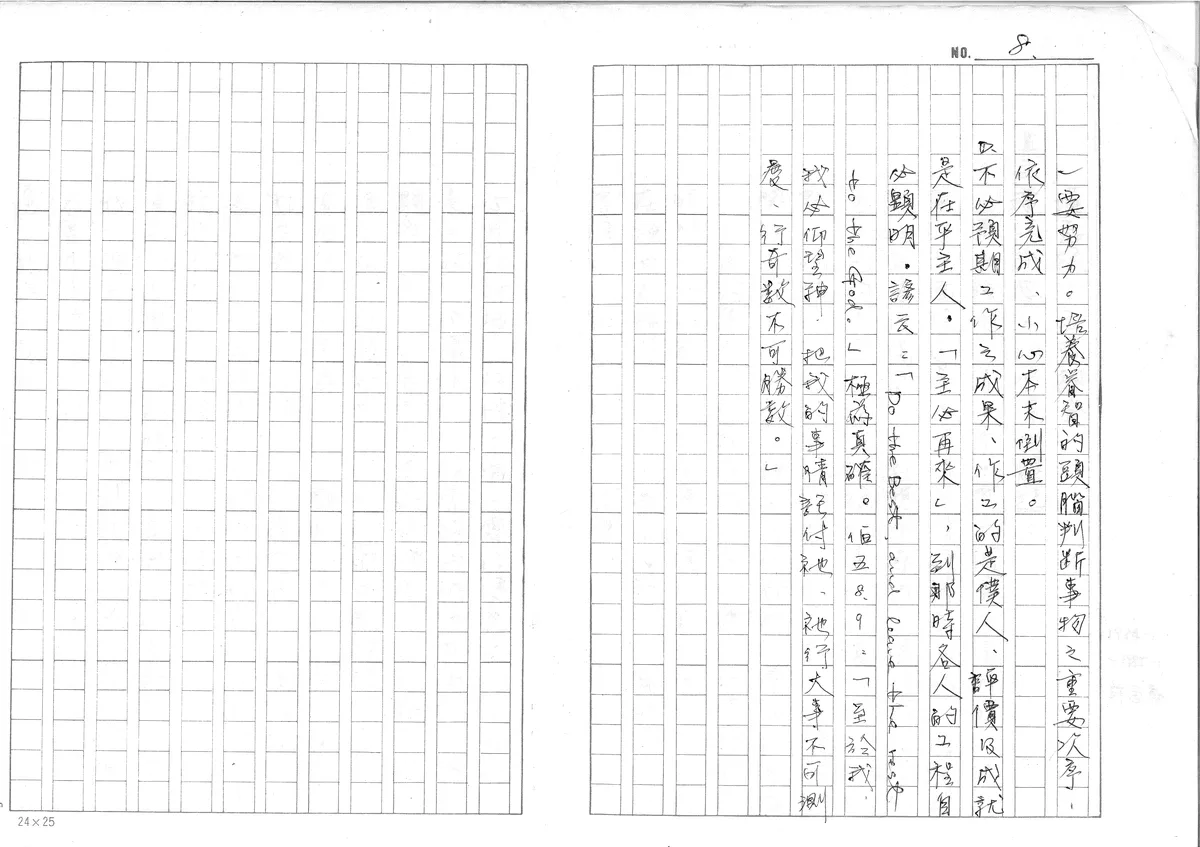 NO. 8.
一要努力。培養睿智的頭腦判斷事物之重要次序、
依序完成、小心本末倒置。
口、不必預期工作之成果、作工的是僕人、評價及成就
是在乎主人。「主必再來」,到那時各人的工程自
必顯明。諺云:「Do the Best, and leave the rest
to the God.」極為真確。伯五8.9:「至於我、
我必仰望神、把我的事情託付祂、祂行大事不可測
度、行奇數不可勝數。」
24×25